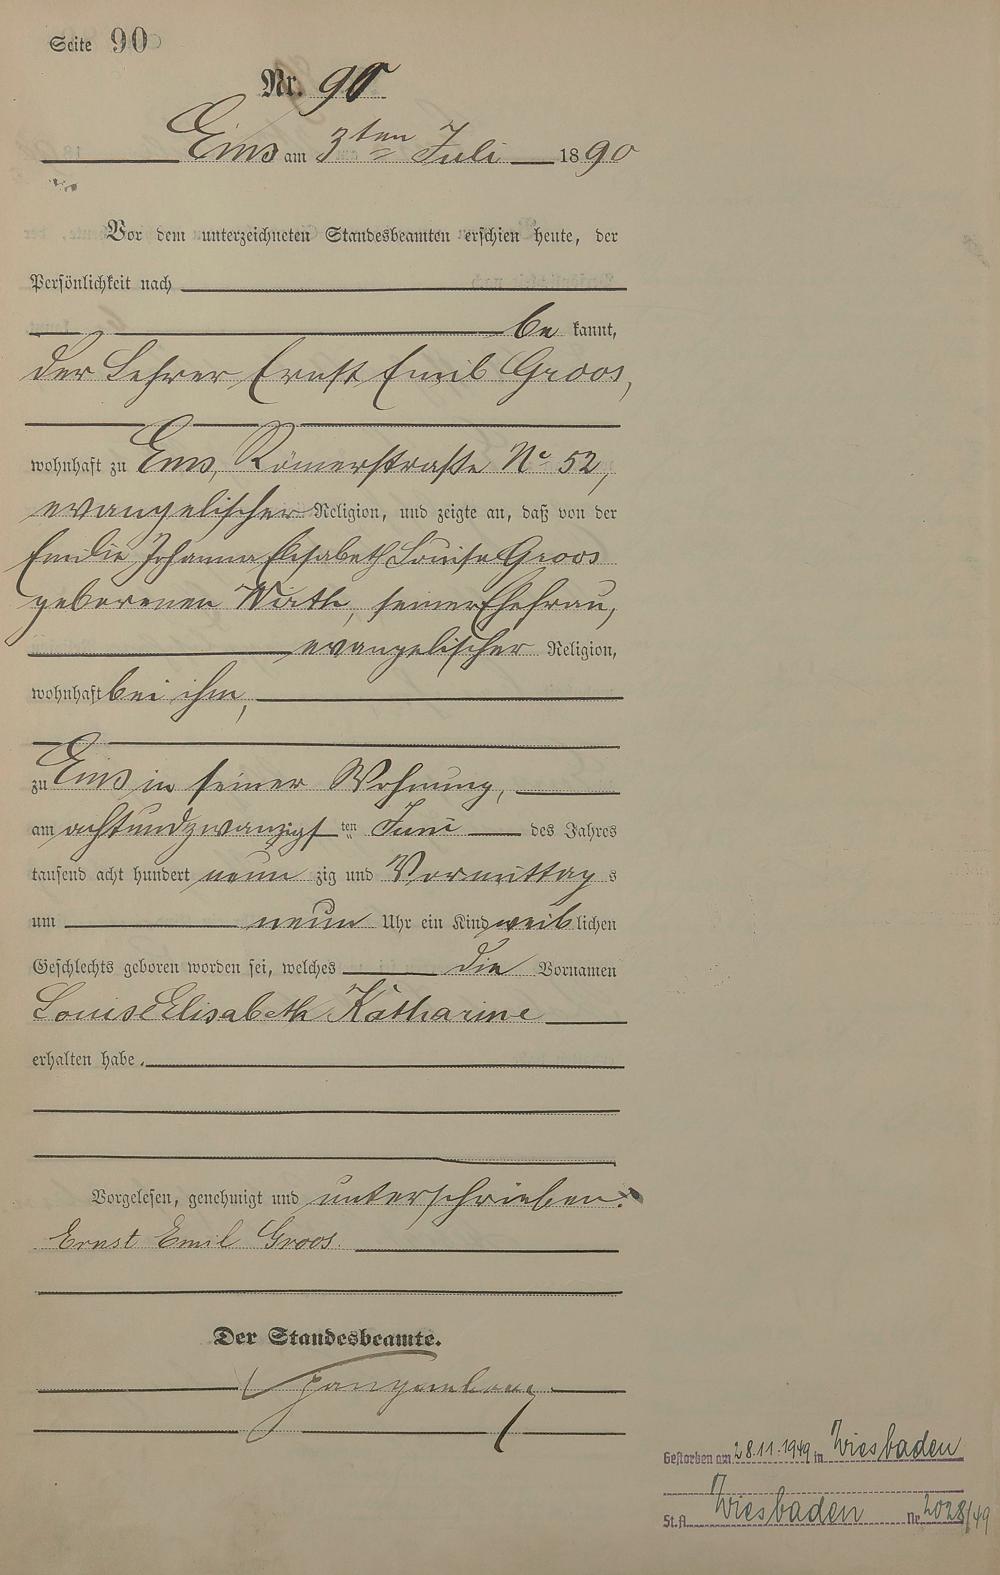 Seite 90
Nr. 90
Ems am 3ten Juli 1890
Vor dem unterzeichneten Standesbeamten erschien heute, der
Persönlichkeit nach
be kannt,
der Lehrer Ernst Emil Groos,
wohnhaft zu Ems, Römerstraße No 52,
evangelischer Religion, und zeigte an, daß von der
Emilie Johanna Elisabeth Louise Groos
geborenen Wirth, seiner Ehefrau,
evangelischer Religion,
wohnhaft bei ihm,
zu Ems in seiner Wohnung,
am achtundzwanzigsten Juni des Jahres
tausend acht hundert neun zig und Vormittag s
um neun Uhr ein Kind weiblichen
Geschlechts geboren worden sei, welches die Vornamen
Louise Elisabeth Katharine
erhalten habe.
Vorgelesen, genehmigt und unterschrieben.
Ernst Emil Groos.
Der Standesbeamte.
Gestorben am 28.11.1949 in Wiesbaden
St.A. Wiesbaden Nr. 2028/49